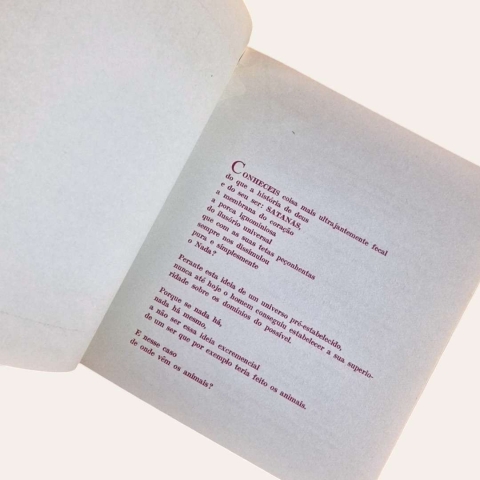 CONHECEIS coisa mais ultrajantemente fecal
do que a história de deus
e do seu ser: SATANÁS,
a membrana do coração
a porca ignominiosa
do ilusório universal
que com as suas tetas peçonhentas
sempre nos dissimulou
pura e simplesmente
o Nada?
Perante esta ideia de um universo pré-estabelecido,
nunca até hoje o homem conseguiu estabelecer a sua superio-
ridade sobre os domínios do possível.
Porque se nada há,
nada há mesmo,
a não ser essa ideia excremencial
de um ser que por exemplo teria feito os animais.
E nesse caso
de onde vêm os animais?